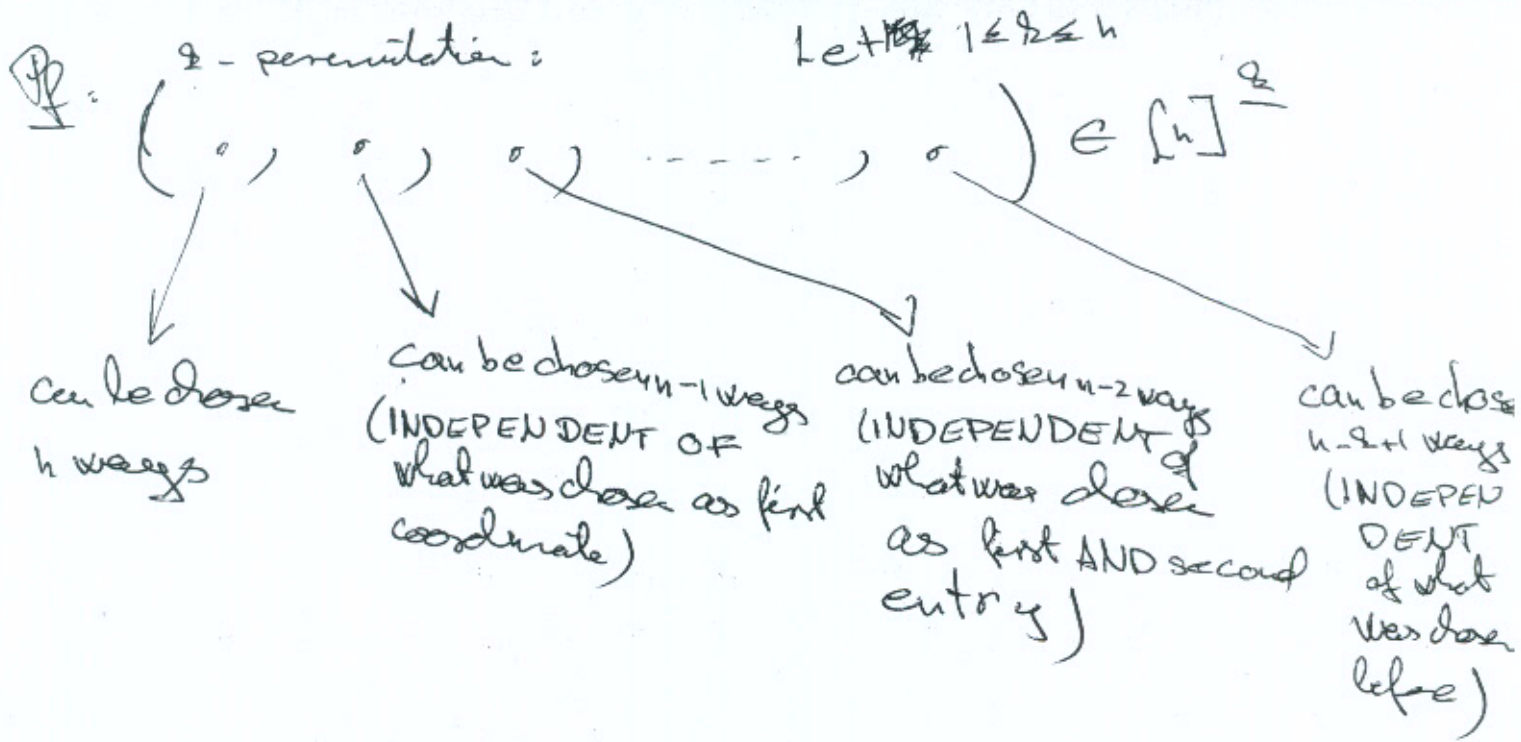 Pf: k-permutation: Let 1 ≤ k ≤ n
( · , · , · , ------ , · ) ∈ [n]^k
can be chosen
n ways
can be chosen n-1 ways
(INDEPENDENT OF
what was chosen as first
coordinate)
can be chosen n-2 ways
(INDEPENDENT of
what was chosen
as first AND second
entry)
can be chose
n-k+1 ways
(INDEPEN
DENT
of what
was chosen
before)